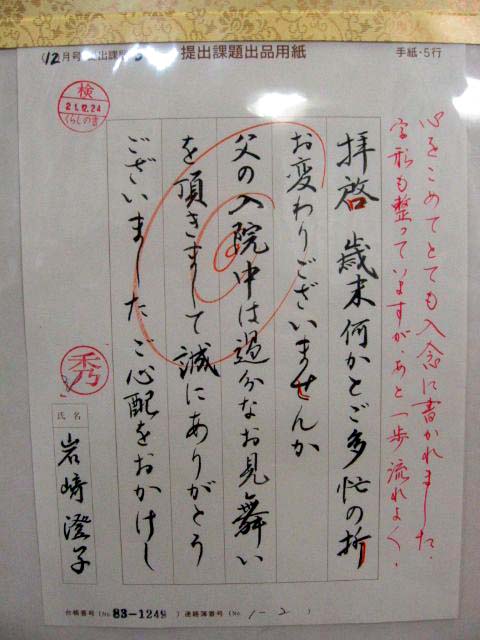 12月号
提出課題出品用紙
手紙・5行
検
21.12.24
くらしのまど
心をこめてとても入念に書かれました。
字形も整っていますが、あと一歩流れよく。
拝啓 歳末何かとご多忙の折
お変わりございませんか
父の入院中は過分なお見舞い
を頂きまして誠にありがとう
ございました ご心配をおかけし
秀
氏名
岩﨑澄子
台帳番号(No.83-1249)連絡簿番号(No.1-2)